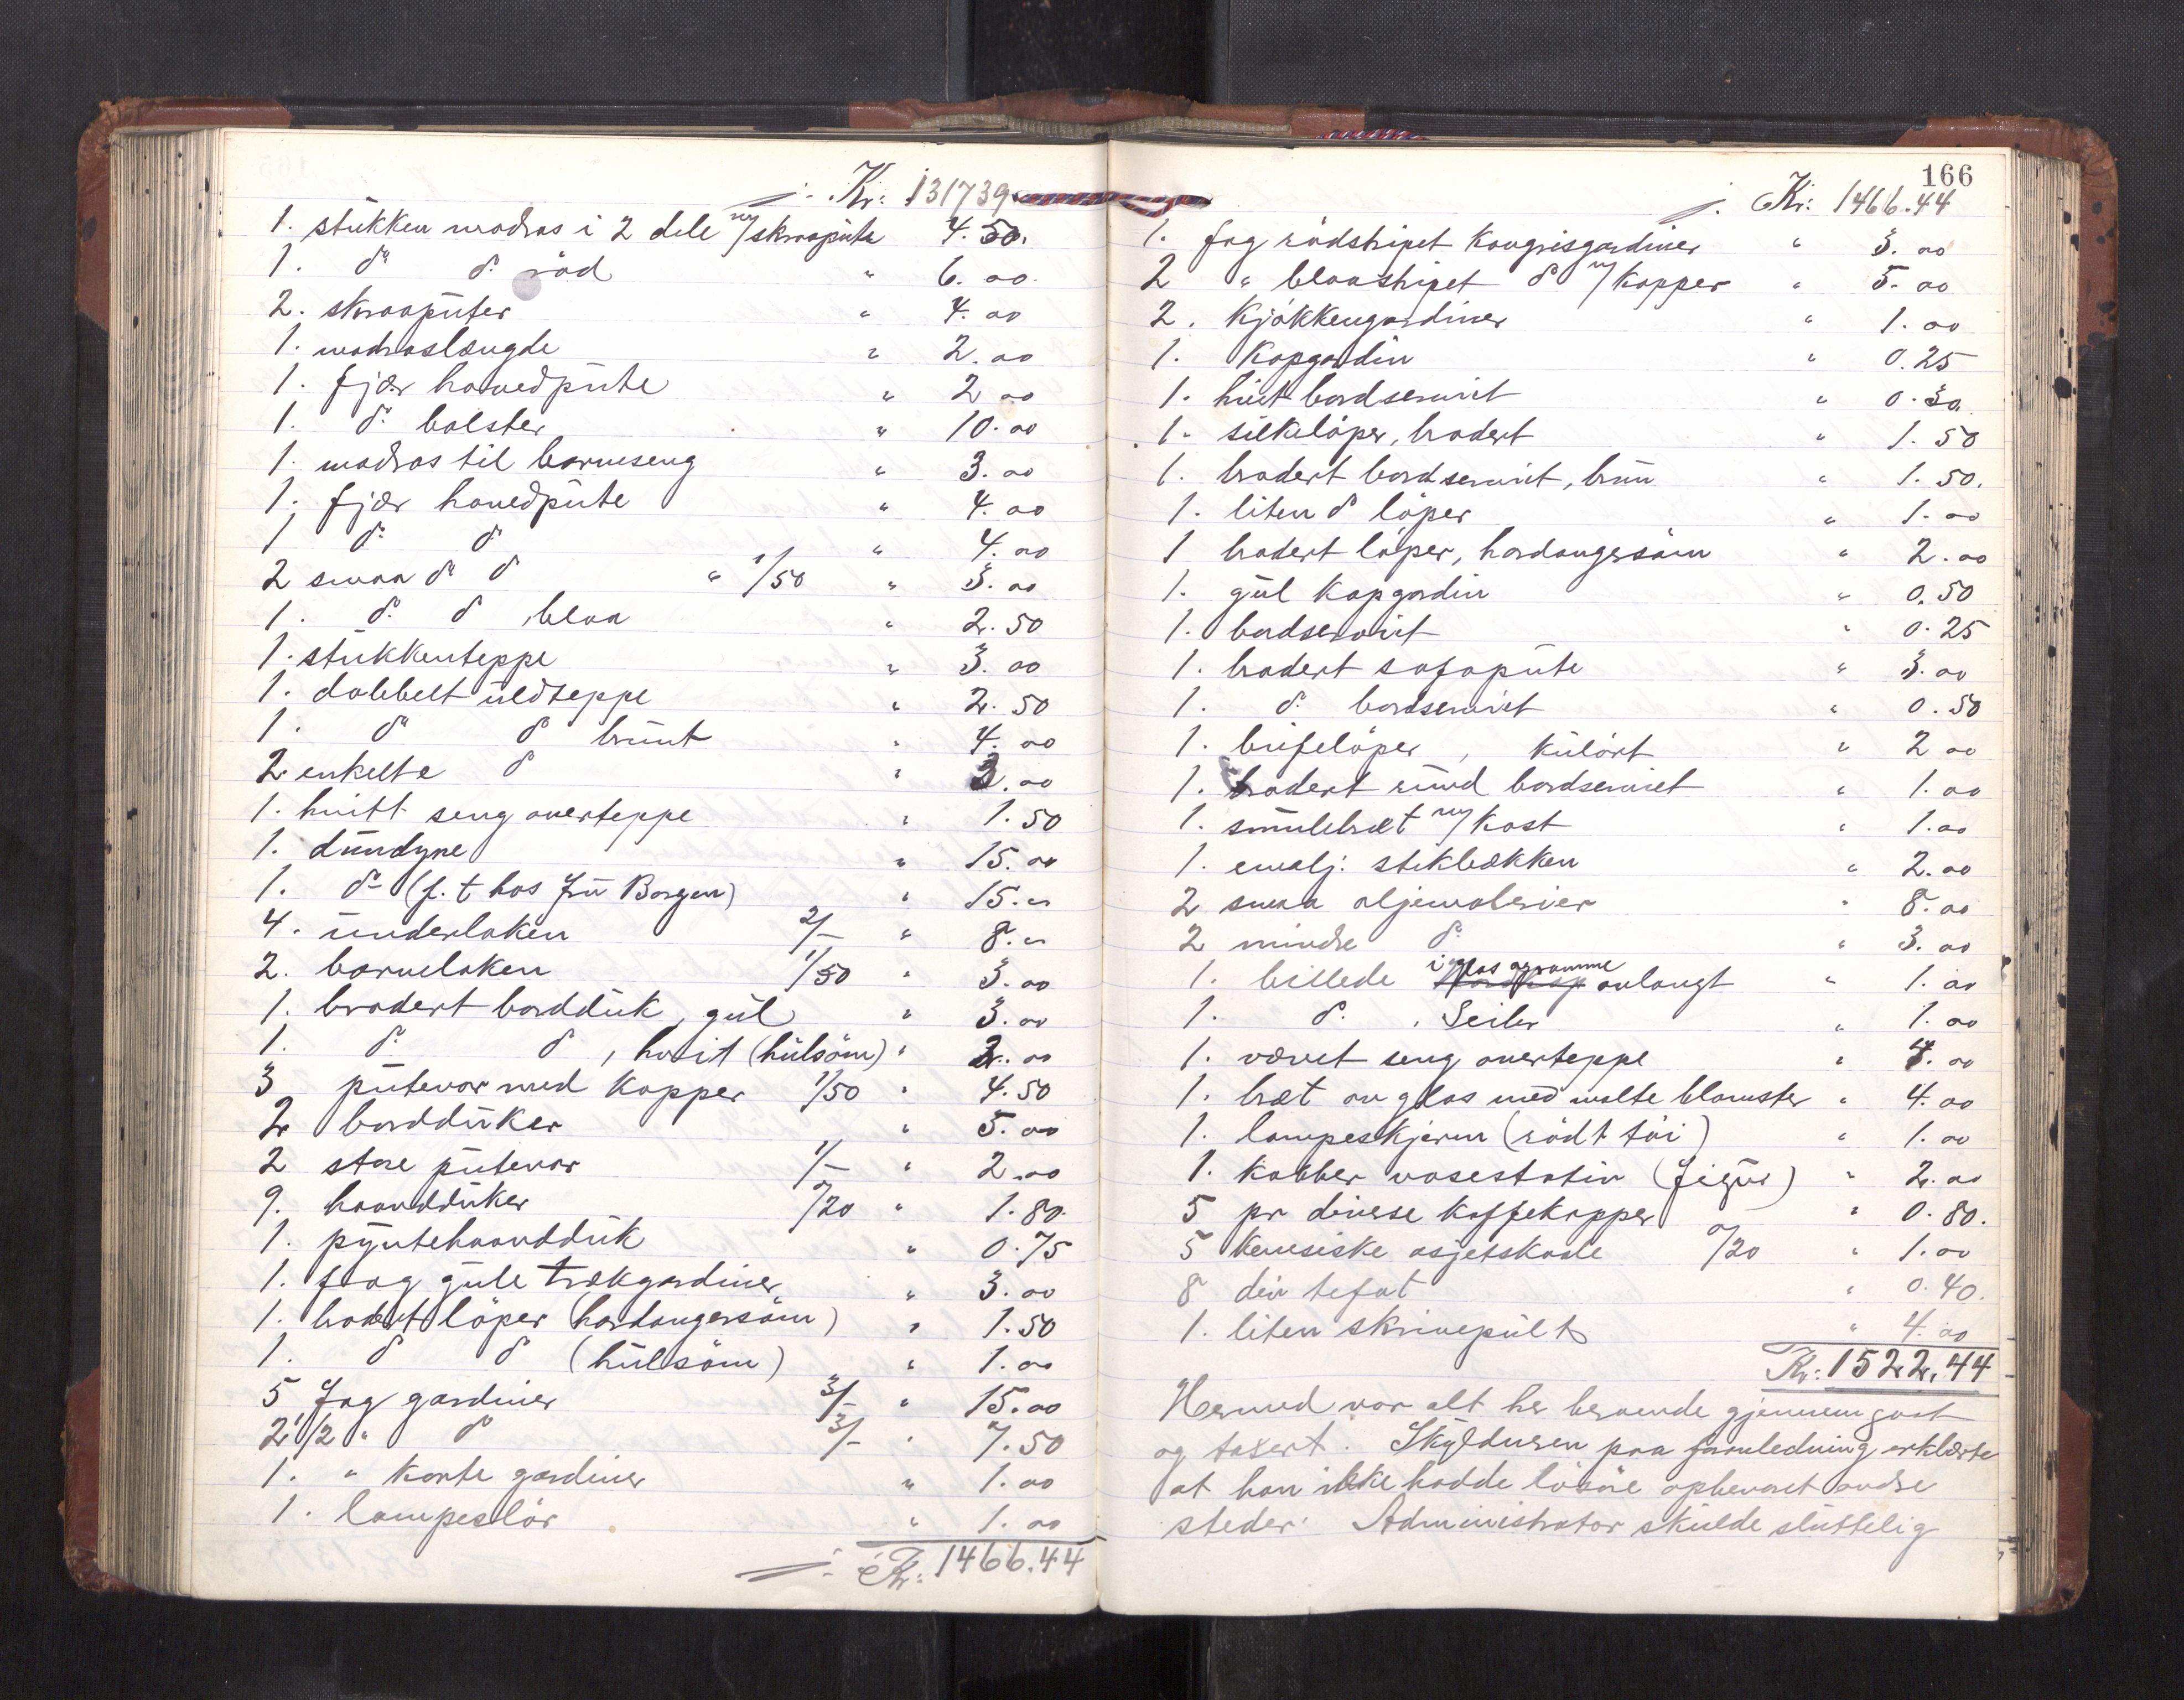 Kr: 131739
1. stükken madras i 2 dele m/skraapüte 4.50.
1. do do röd " 6.00.
2. skraapüter " 4.00
1. madraslængde " 2.00
1. fjær hovedpüte " 2 00
1. do bolster " 10.00
1. madras til barneseng " 3.00
1. fjær hovedpüte " 4.00
1 do do " 4.00
2 smaa do do " 1/50 " 3.00
1. do do, blaa " 2.50
1. stükkenteppe " 3.00
1. dobbelt üldteppe " 2.50
1. do do brünt " 4.00
2 enkelte do " 3.00
1. hvitt seng overteppe " 1.50
1. dündyne " 15.00
1. do (f. t hos frü Borgen) " 15.00
4. ünderlaken 2/- " 8.00
2. barnelaken 1/50 " 3.00
1. brodert borddük, gül " 3.00
1. do do, hvit (hülsöm) " 2.00
3 pütevar med kapper 1/50 " 4.50
2 borddüker " 5.00
2 store pütevar 1/- " 2.00
9. haanddüker 0/20 " 1.80.
1. pyntehaanddük " 0.75
1. fag güle trækgardiner " 3.00
1. brodert löper (hardangersöm) " 1.50
1. do do (hülsöm) " 1.00
5 fag gardiner 3/- " 15.00
2 1/2 " do 3/- " 7.50
1. " korte gardiner " 1.00
1. lampeslör " 1.00
Kr: 1466.44
166
Kr: 1466.44
1. fag rödstripet kongrisgardiner " 3.00
2 " blaastripet do m/kapper " 5.00
2. kjökkengardiner " 1.00
1. kapgardin " 0.25
1. hvit bordserviet " 0.30
1. silkelöper, brodert " 1.50
1. brodert bordserviet, brün " 1.50.
1. liten do löper " 1.00
1 brodert löper, hardangersöm " 2.00
1. gül kapgardin " 0.50
1. bordserviet " 0.25
1. brodert sofapüte " 3.00
1. do bordserviet " 0.50
1. büfelöper, külört " 2 00
1. brodert ründ bordserviet " 1.00
1. smülebræt m/kost " 1.00
1. emalj. stikbækken " 2.00
2 smaa oljemalerier " 8.00
2 mindre do " 3.00
1. billede i glas og ramme avlangt " 1.00
1. do, Seiler " 1.00
1. vævet seng overteppe " 4.00
1. bræt av glas med malte blomster " 4.00
1. lampeskjerm (rödt töi) " 1.00
1. kobber vasestativ (figür) " 2.00
5 pr diverse kaffekopper " 0.80.
5 kinesiske asjetskaale 0/20 " 1.00
8 div tefat " 0.40.
1. liten skrivepült " 4.00
Kr: 1522.44
Hermed var alt her beroende gjennemgaat
og taxert. Skyldneren paa foranledning erklærte
at han ikke hadde lösöre opbevaret andre
steder. Administrator skülde slüttelig